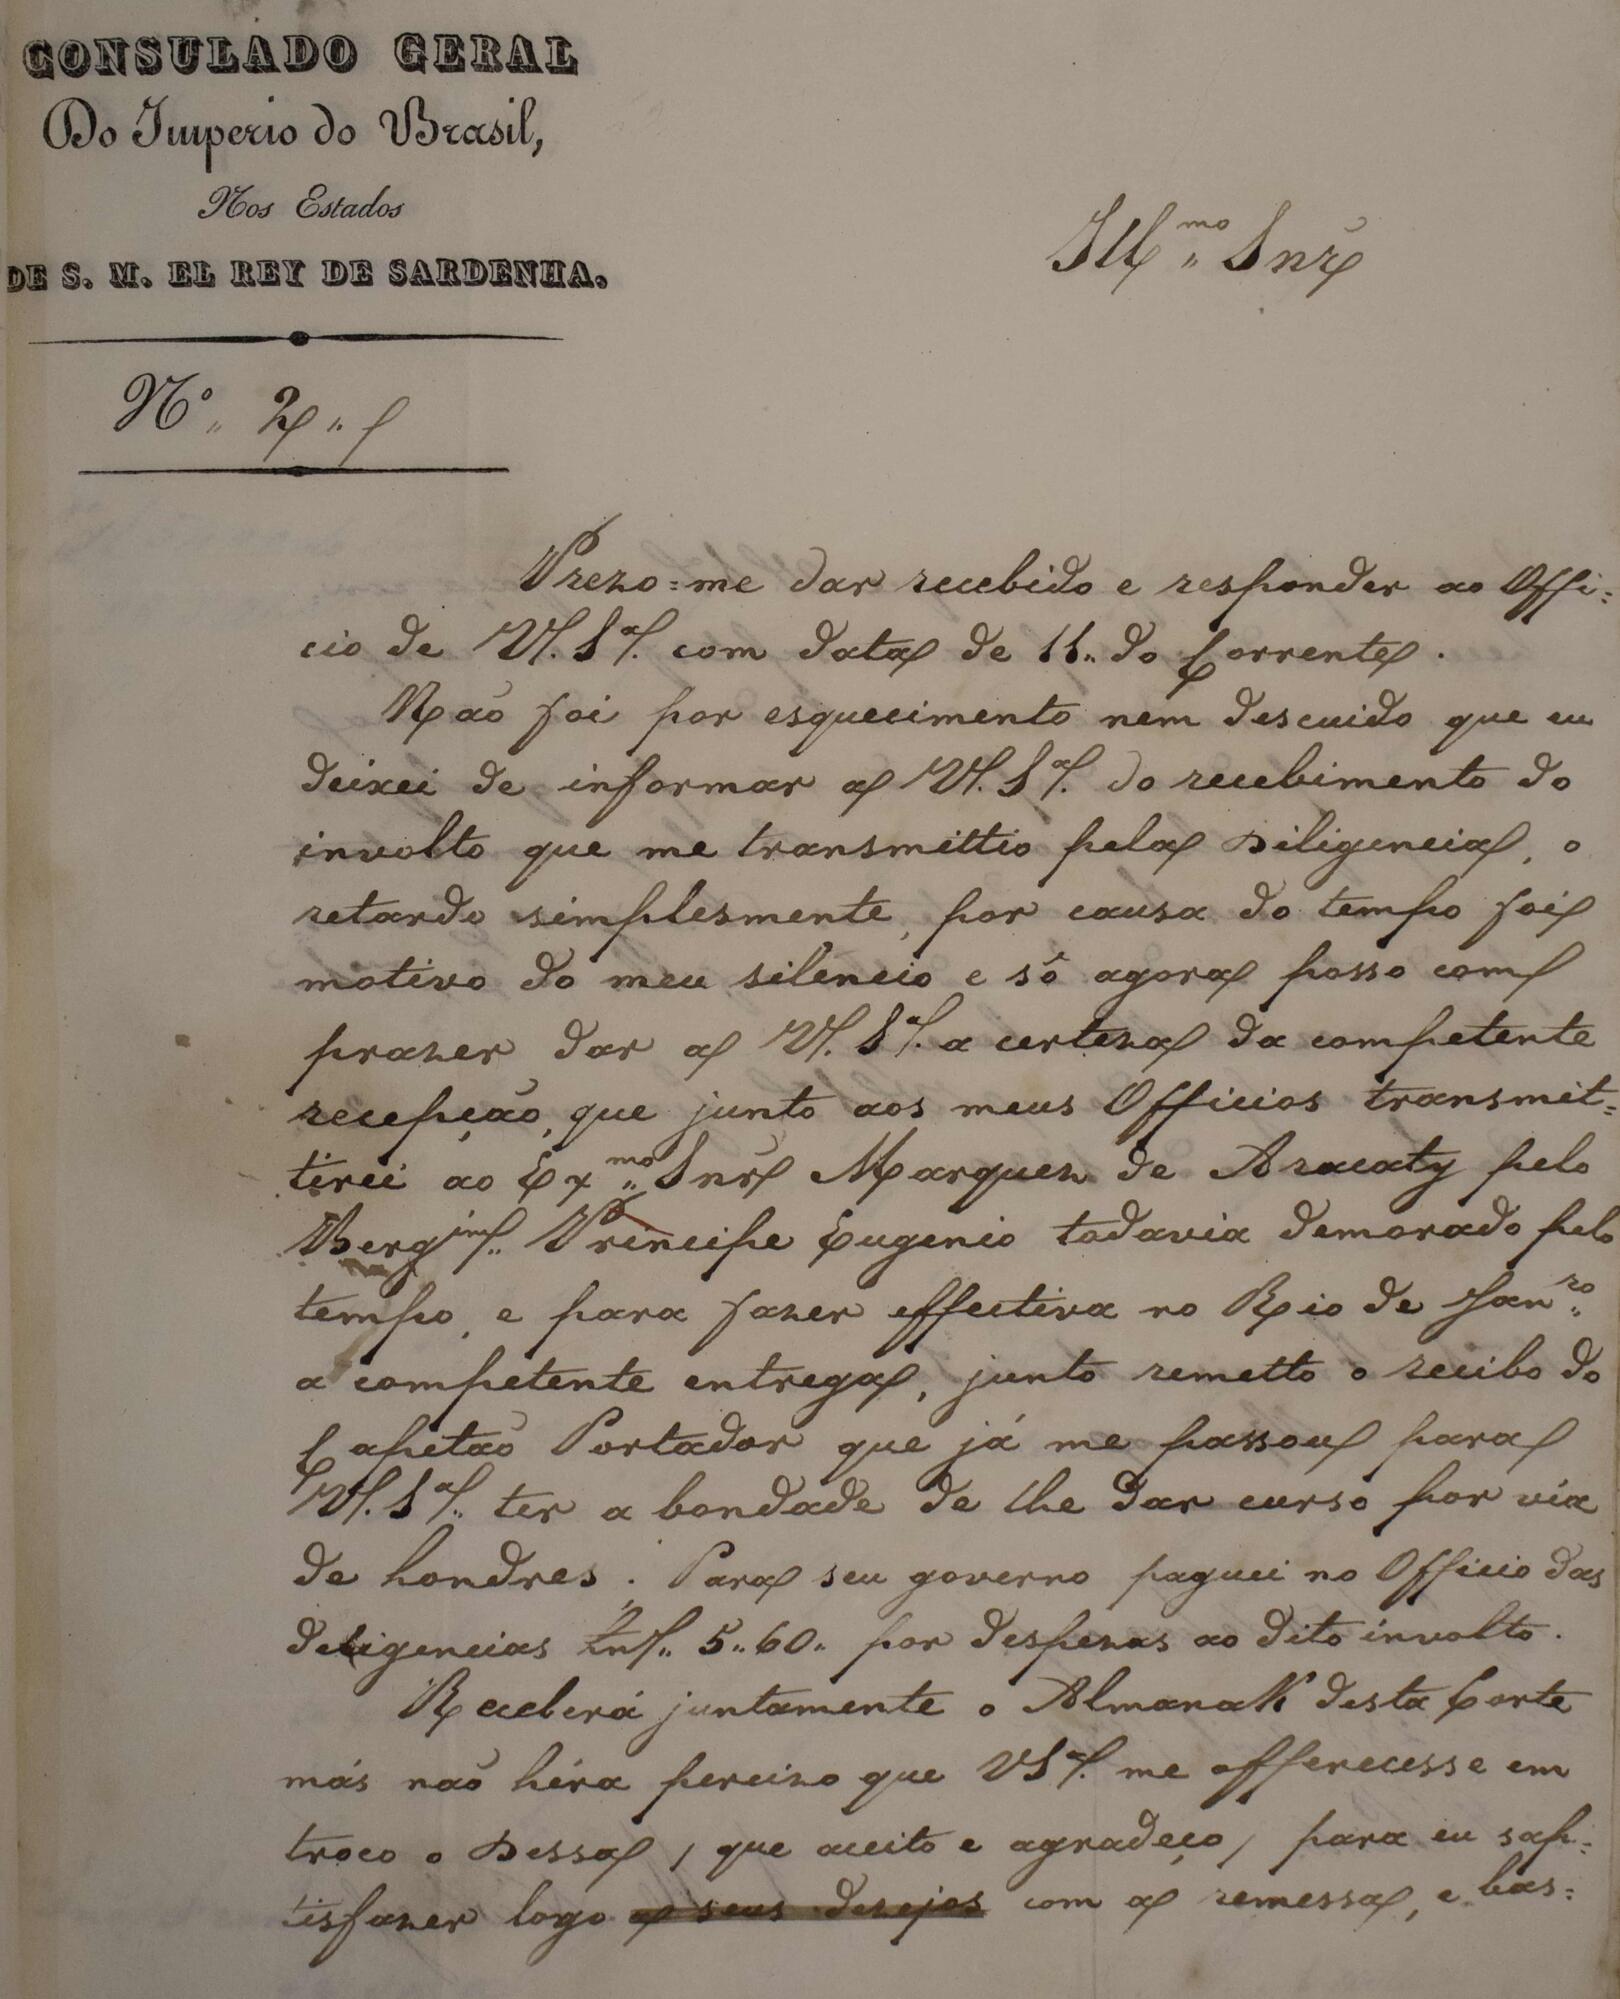 CONSULADO GERAL
Do Imperio do Brasil,
Nos Estados
DE S. M. EL REY DE SARDENHA.
Illmo Snr
Nº 2
Prezo=me dar recebido e responder ao Offi=
cio de V. Sa. com data de 11 do Corrente.
Não foi por esquecimento nem descuido que eu
deixei de informar a V. Sa. do recebimento do
involto que me transmittio pela Diligencia, o
retardo simplesmente, por causa do tempo foi
motivo do meu silencio e só agora posso com
prazer dar a V. Sa. a certeza da competente
recepção, que junto aos meus Officios transmit=
tirei ao Exmo Snr Marquez de Aracaty pelo
Bergim Principe Eugenio todavia demorado pelo
tempo, e para fazer effectiva no Rio de Janro
a competente entrega, junto remetto o recibo do
Capetão Portador que já me passou para
V. Sa. ter a bondade de lhe dar curso por via
de Londres. Para seu governo paguei no Officio das
deligencias 5 60 por despezas ao dito involto.
Receberá juntamente o AlmanaK desta Corte
más não héra percizo que VSa. me offerecesse em
troco o Dessa, que aceito e agradeço, para eu sa=
tisfazer logo a seus dezejos com a remessa, e bas=